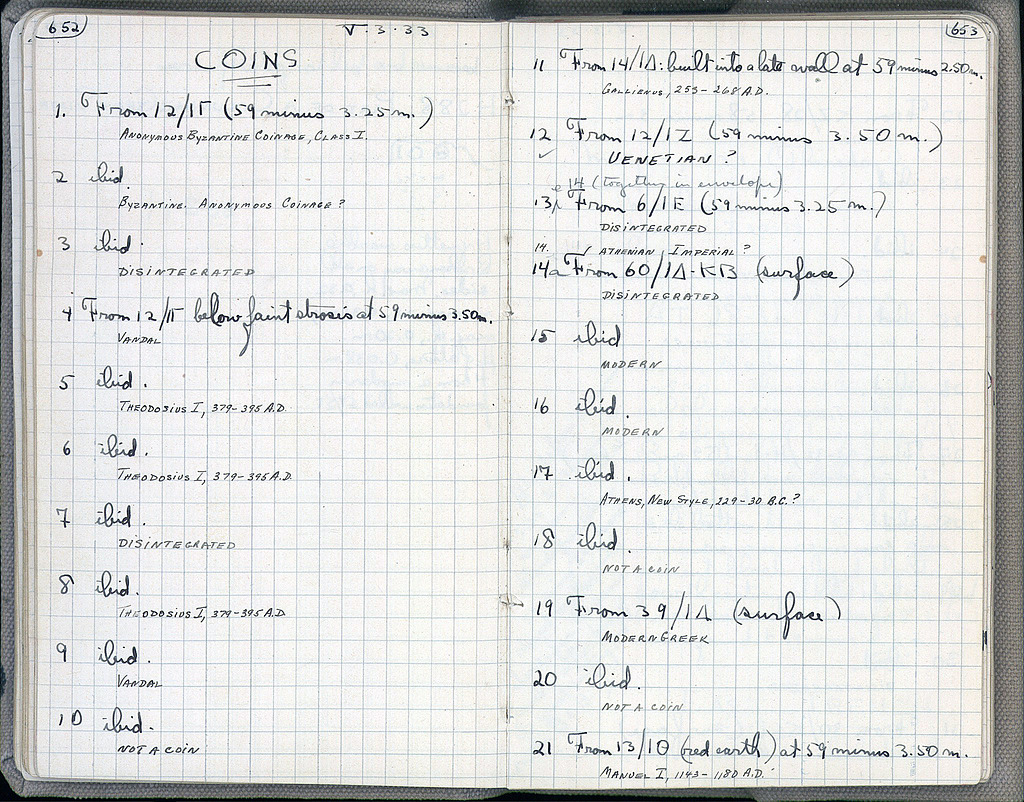 652
V·3·33
COINS
1. From 12/ΙΓ (59 minus 3.25 m.)
ANONYMOUS BYZANTINE COINAGE, CLASS I.
2 ibid.
BYZANTINE. ANONYMOUS COINAGE?
3 ibid.
DISINTEGRATED
4 From 12/ΙΓ below faint strosis at 59 minus 3.50 m.
VANDAL
5 ibid.
THEODOSIUS I, 379-395 A.D.
6 ibid.
THEODOSIUS I, 379-395 A.D.
7 ibid.
DISINTEGRATED
8 ibid.
THEODOSIUS I, 379-395 A.D.
9 ibid.
VANDAL
10 ibid.
NOT A COIN
653
11 From 14/ΙΔ: built into a late wall at 59 minus 2.50 m.
GALLIENUS, 253-268 A.D.
12 From 12/ΙΖ (59 minus 3.50 m.)
✓ VENETIAN ?
14 (together in envelope)
13 From 6/ΙΕ (59 minus 3.25 m.)
DISINTEGRATED
14. ATHENIAN IMPERIAL?
14a From 60/ΙΔ-ΚΒ (surface)
DISINTEGRATED
15 ibid
MODERN
16 ibid.
MODERN
17 ibid.
ATHENS, NEW STYLE, 229-30 B.C.?
18 ibid.
NOT A COIN
19 From 39/ΙΔ (surface)
MODERN GREEK
20 ibid.
NOT A COIN
21 From 13/ΙΘ (red earth) at 59 minus 3.50 m.
MANUEL I, 1143-1180 A.D.